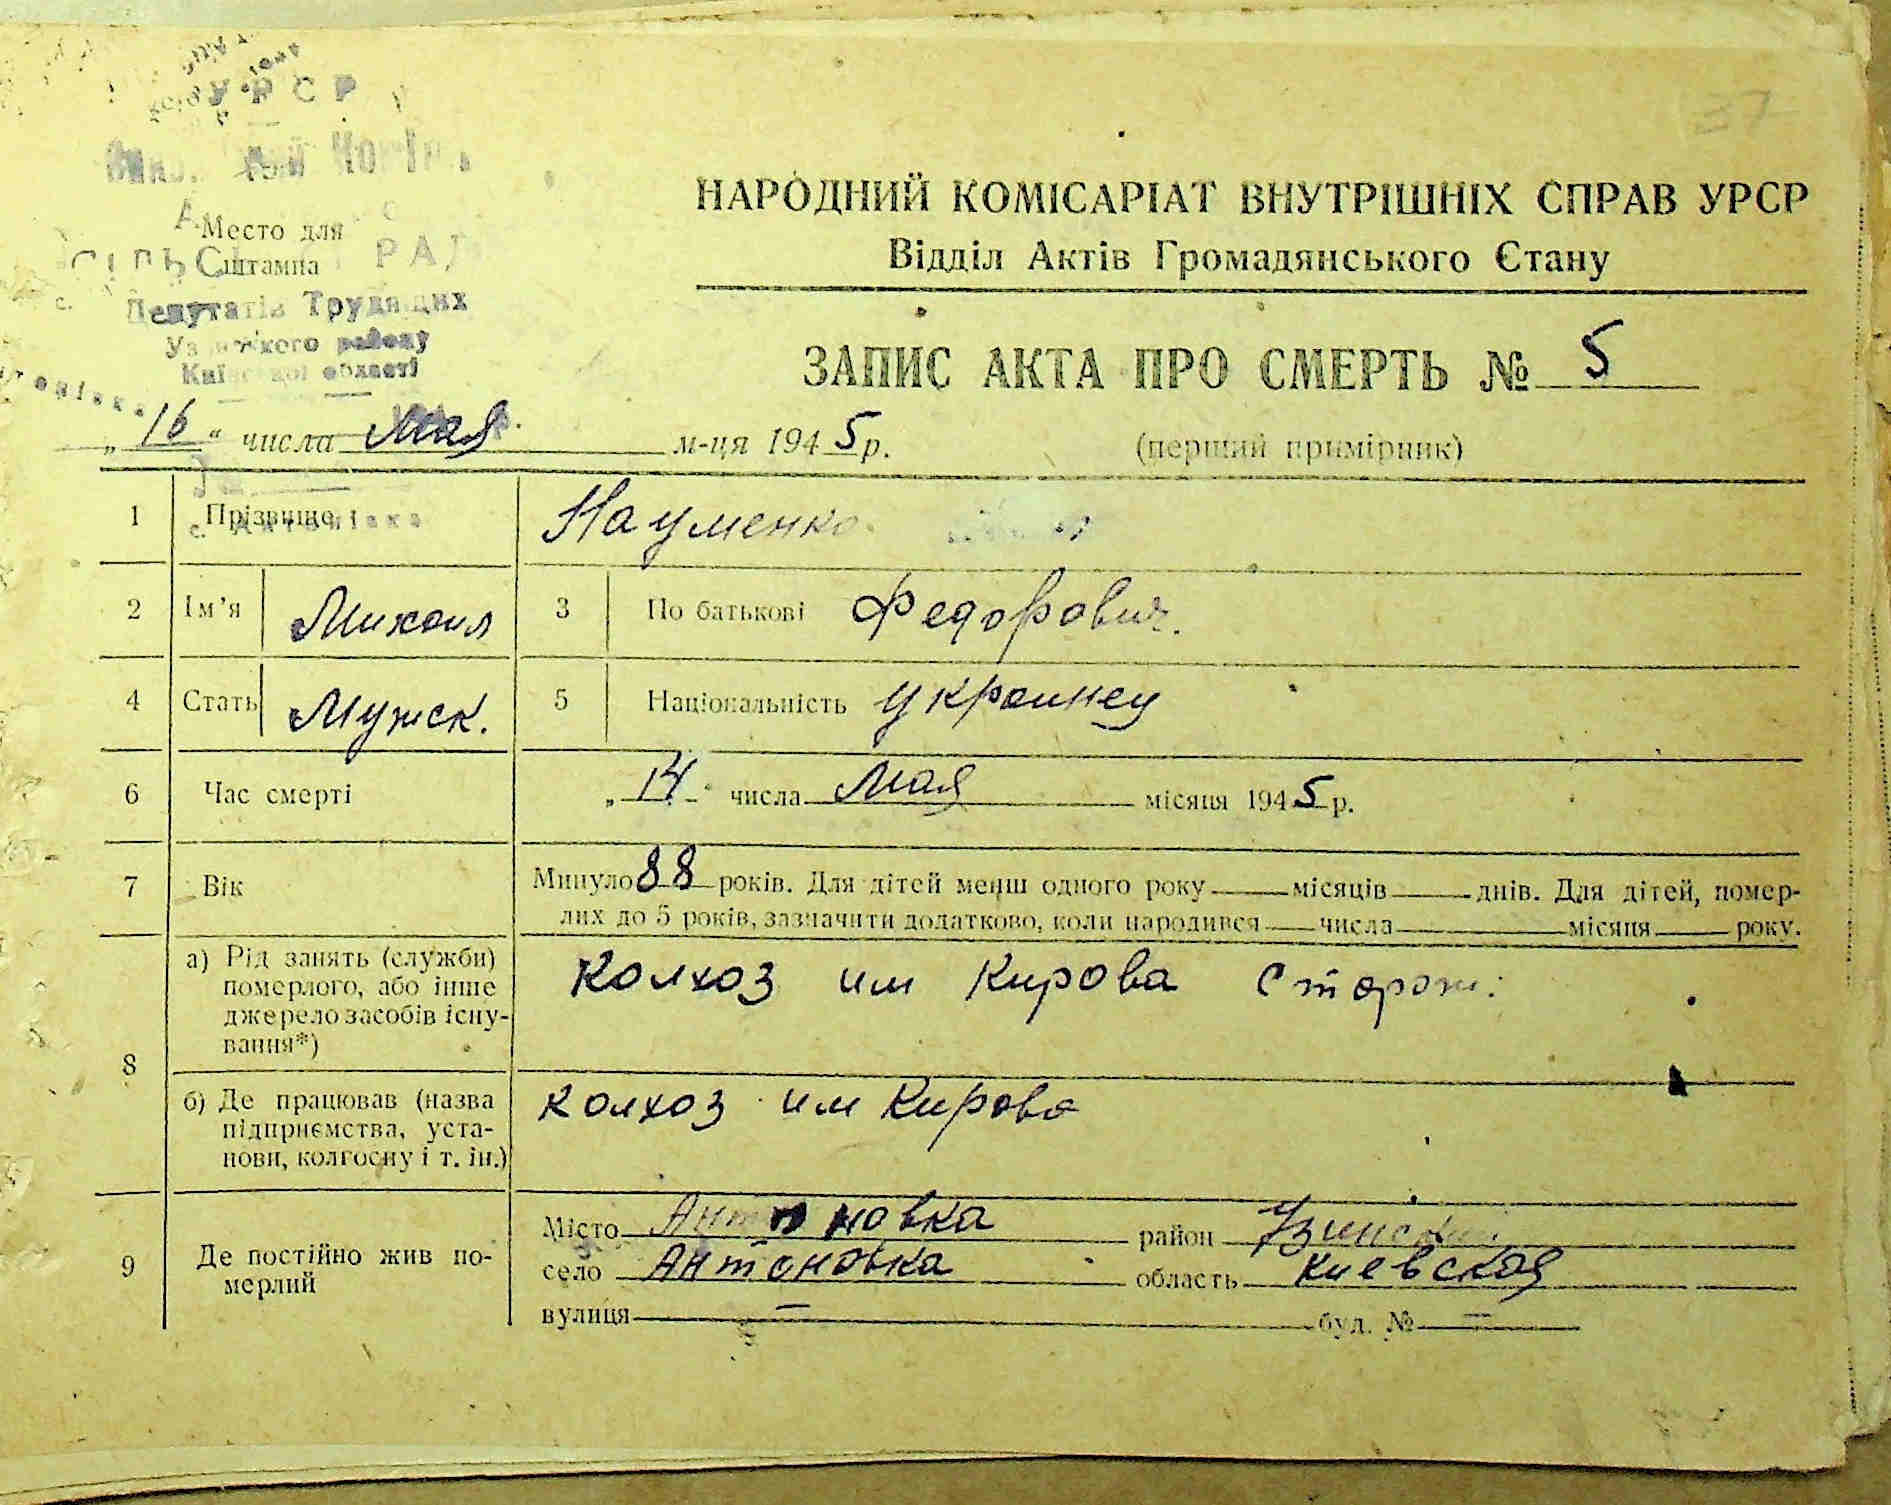 37
УРСР
НАРОДНИЙ КОМІСАРІАТ ВНУТРІШНІХ СПРАВ УРСР
Место для
Штампа
РАД
Відділ Актів Громадянського Стану
Депутатів Трудящих
району
Київської області
ЗАПИС АКТА ПРО СМЕРТЬ № 5
„16“ числа Мая м-ця 1945 р.
(перший примірник)
1 Прізвище Науменко
с. Антонівка
2 Ім'я Михаил 3 По батькові Федорович.
4 Стать Мужск. 5 Національність украинец
6 Час смерті „14“ числа Мая місяця 1945 р.
7 Вік Минуло 88 років. Для дітей менш одного року місяців днів. Для дітей, помер-
лих до 5 років, зазначити додатково, коли народився числа місяця року.
8 а) Рід занять (служби) померлого, або інше джерело засобів існу-вання*) Колхоз им Кирова Сторож.
б) Де працював (назва підприємства, уста-нови, колгоспу і т. ін.) колхоз им Кирова
9 Де постійно жив по-мерлий
Місто Антоновка район Узинский
село Антоновка область Киевская
вулиця — буд. № —